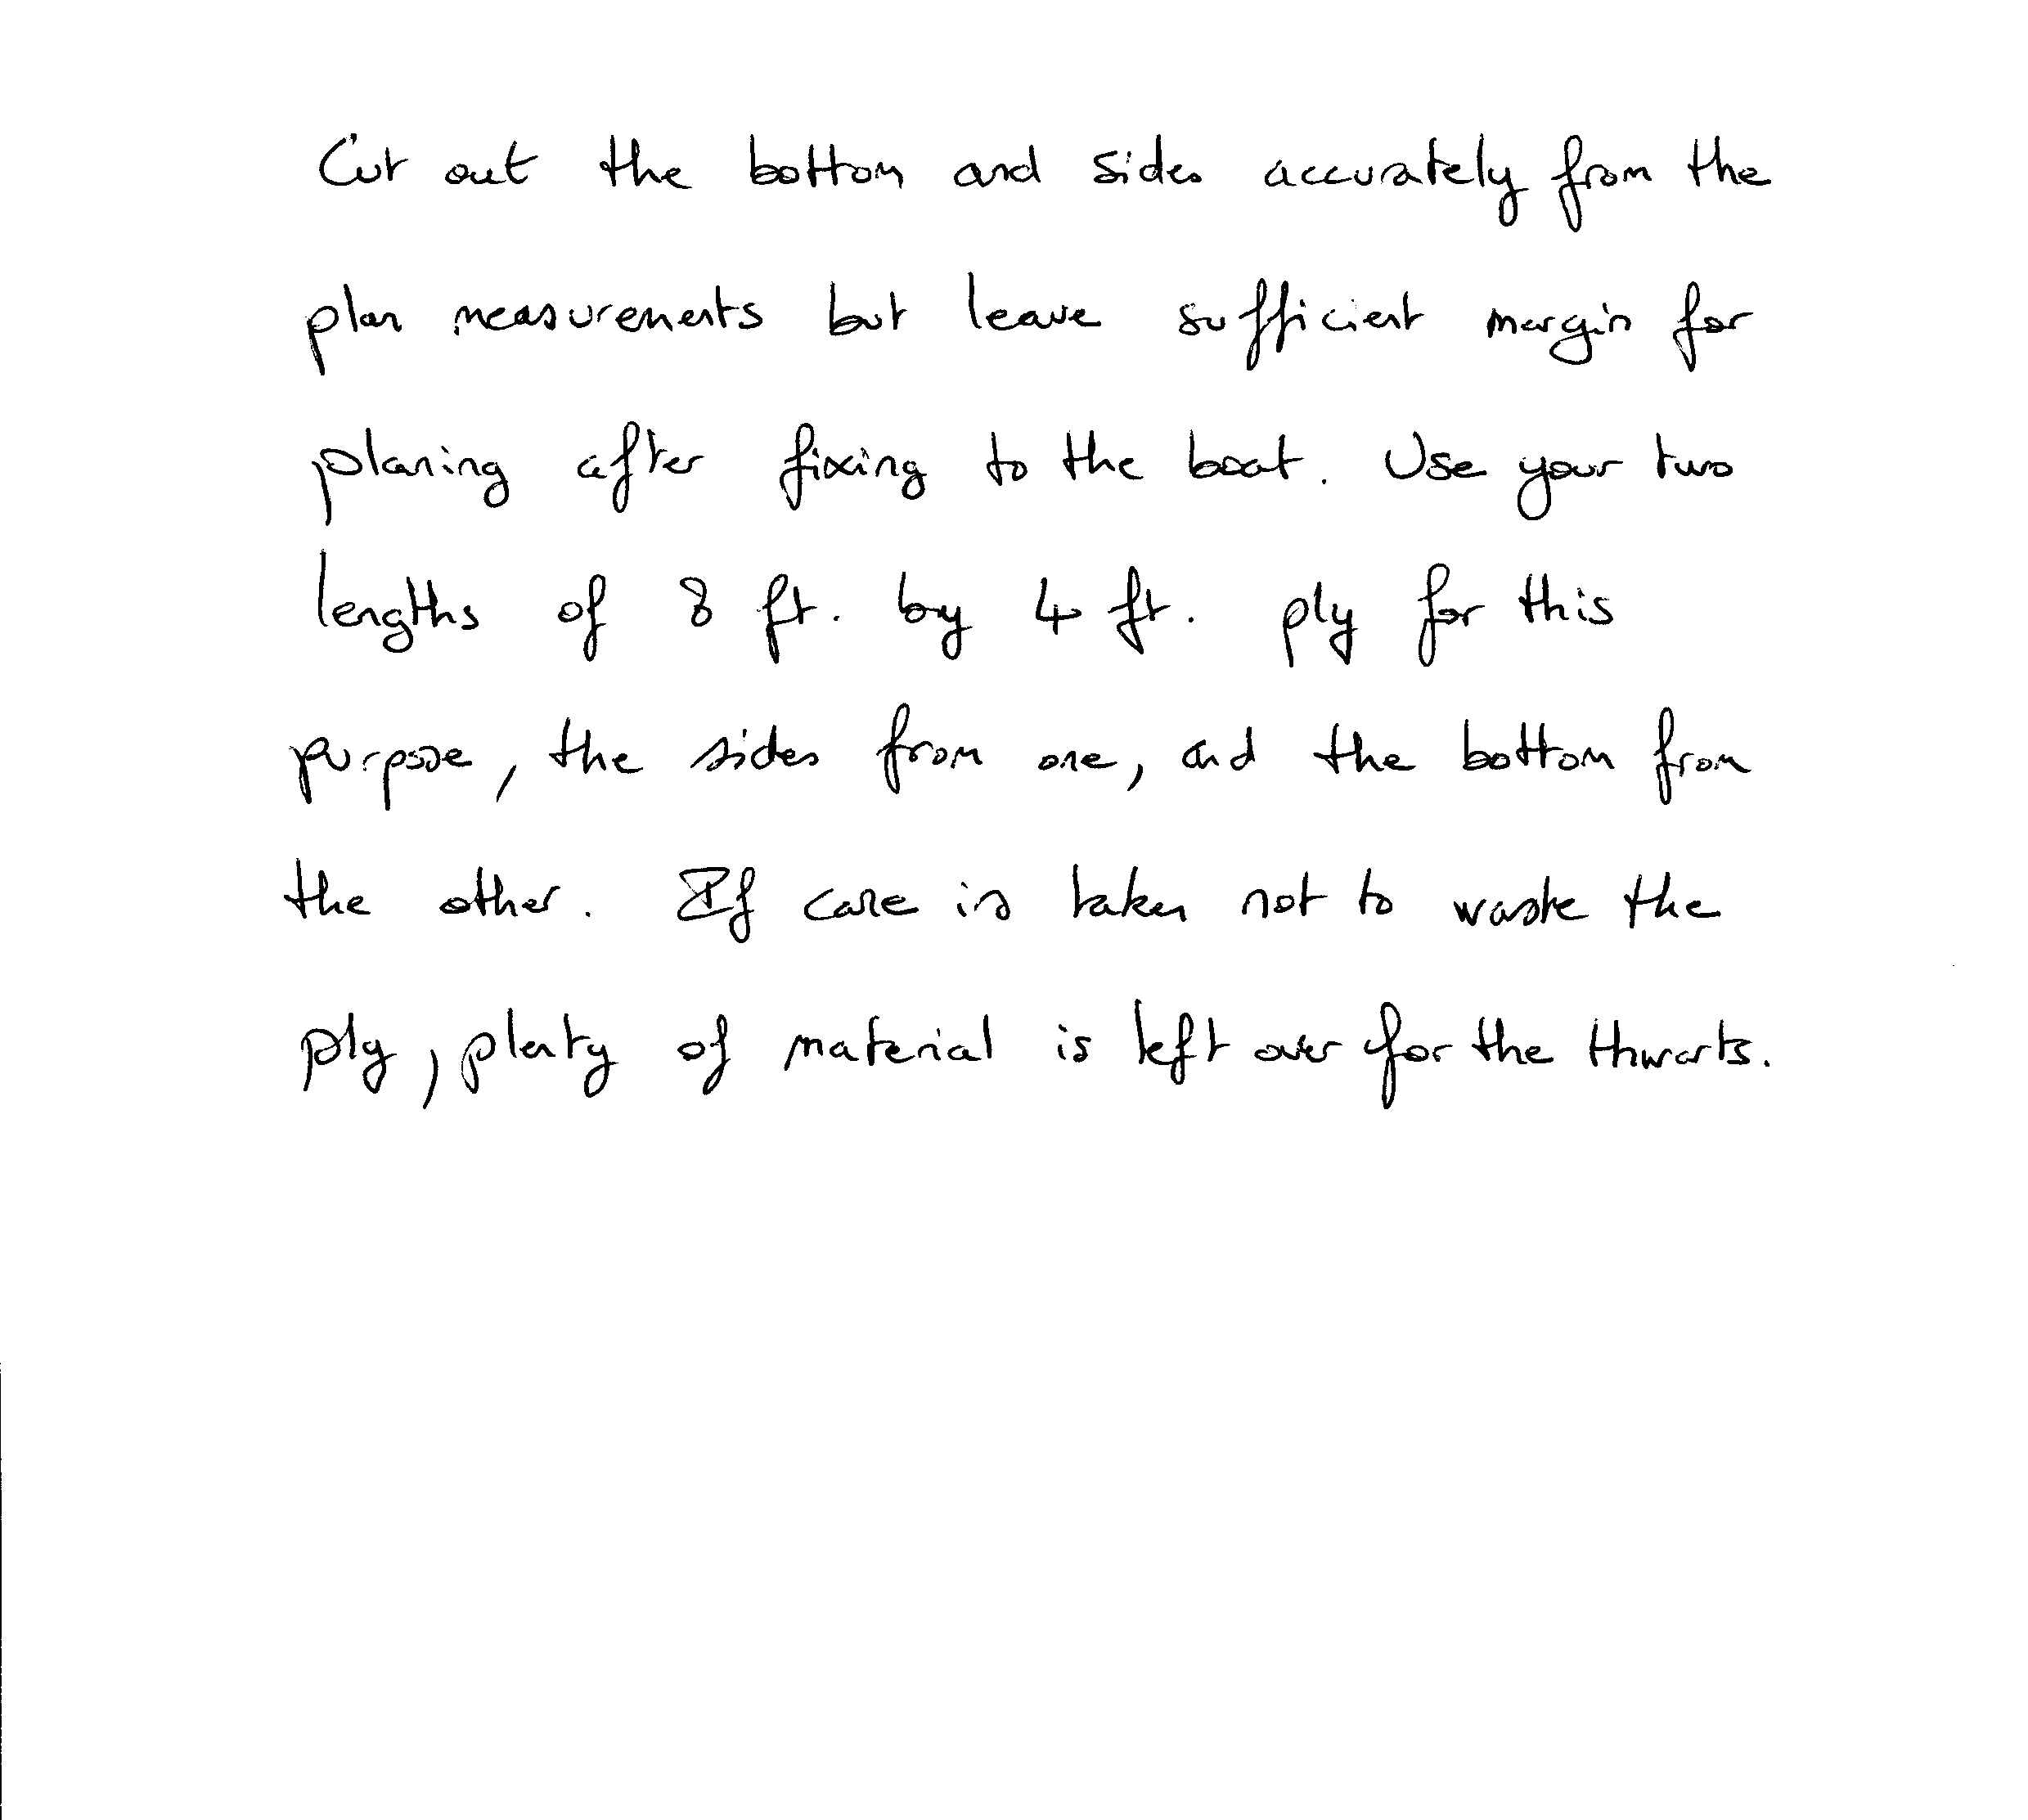 Cut out the bottom and sides accurately from the
plan measurements but leave sufficient margin for
planing after fixing to the boat. Use your two
lengths of 8 ft. by 4 ft. ply for this
purpose, the sides from one, and the bottom from
the other. If care is taken not to waste the
ply, plenty of material is left over for the thwarts.